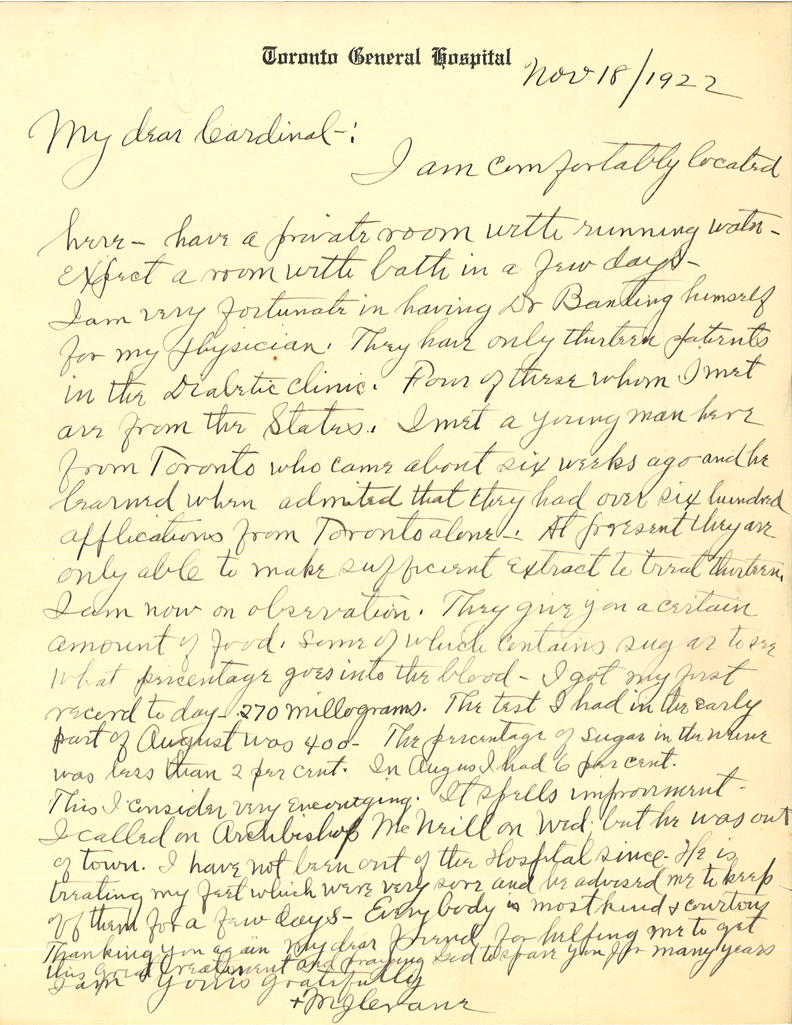 Toronto General Hospital
Nov 18/1922
My dear Cardinal-:
I am comfortably located
here- have a private room with running water-
Expect a room with bath in a few days-
I am very fortunate in having Dr Banting himself
for my physician. They have only thirteen patients
in the Diabetic Clinic. Four of these whom I met
are from the States. I met a young man here
from Toronto who came about six weeks ago and he
learned when admited that they had over six hundred
applications from Toronto alone. At present they are
only able to make sufficient Extract to treat thirteen.
I am now on observation. They give you a certain
amount of food. Some of which contains sugar to see
What percentage goes into the blood- I got my first
record to day- 270 millograms. The test I had in the early
part of August was 400- The percentage of Sugar in the urine
was less than 2 per cent. In Augus I had 6 per cent.
This I consider very Encouraging. It spells improvment-
I called on Archbishop McNeill on Wed. but he was out
of town. I have not been out of the Hospital since- He is
treating my feet which were very sore and he advised me to keep
off them for a few days- Everybody is most kind & courtesy
Thanking you again my dear friend for helping me to get
this Great Treatment and praying God to spare you for many years
I am Yours gratefully
+ M J Crane